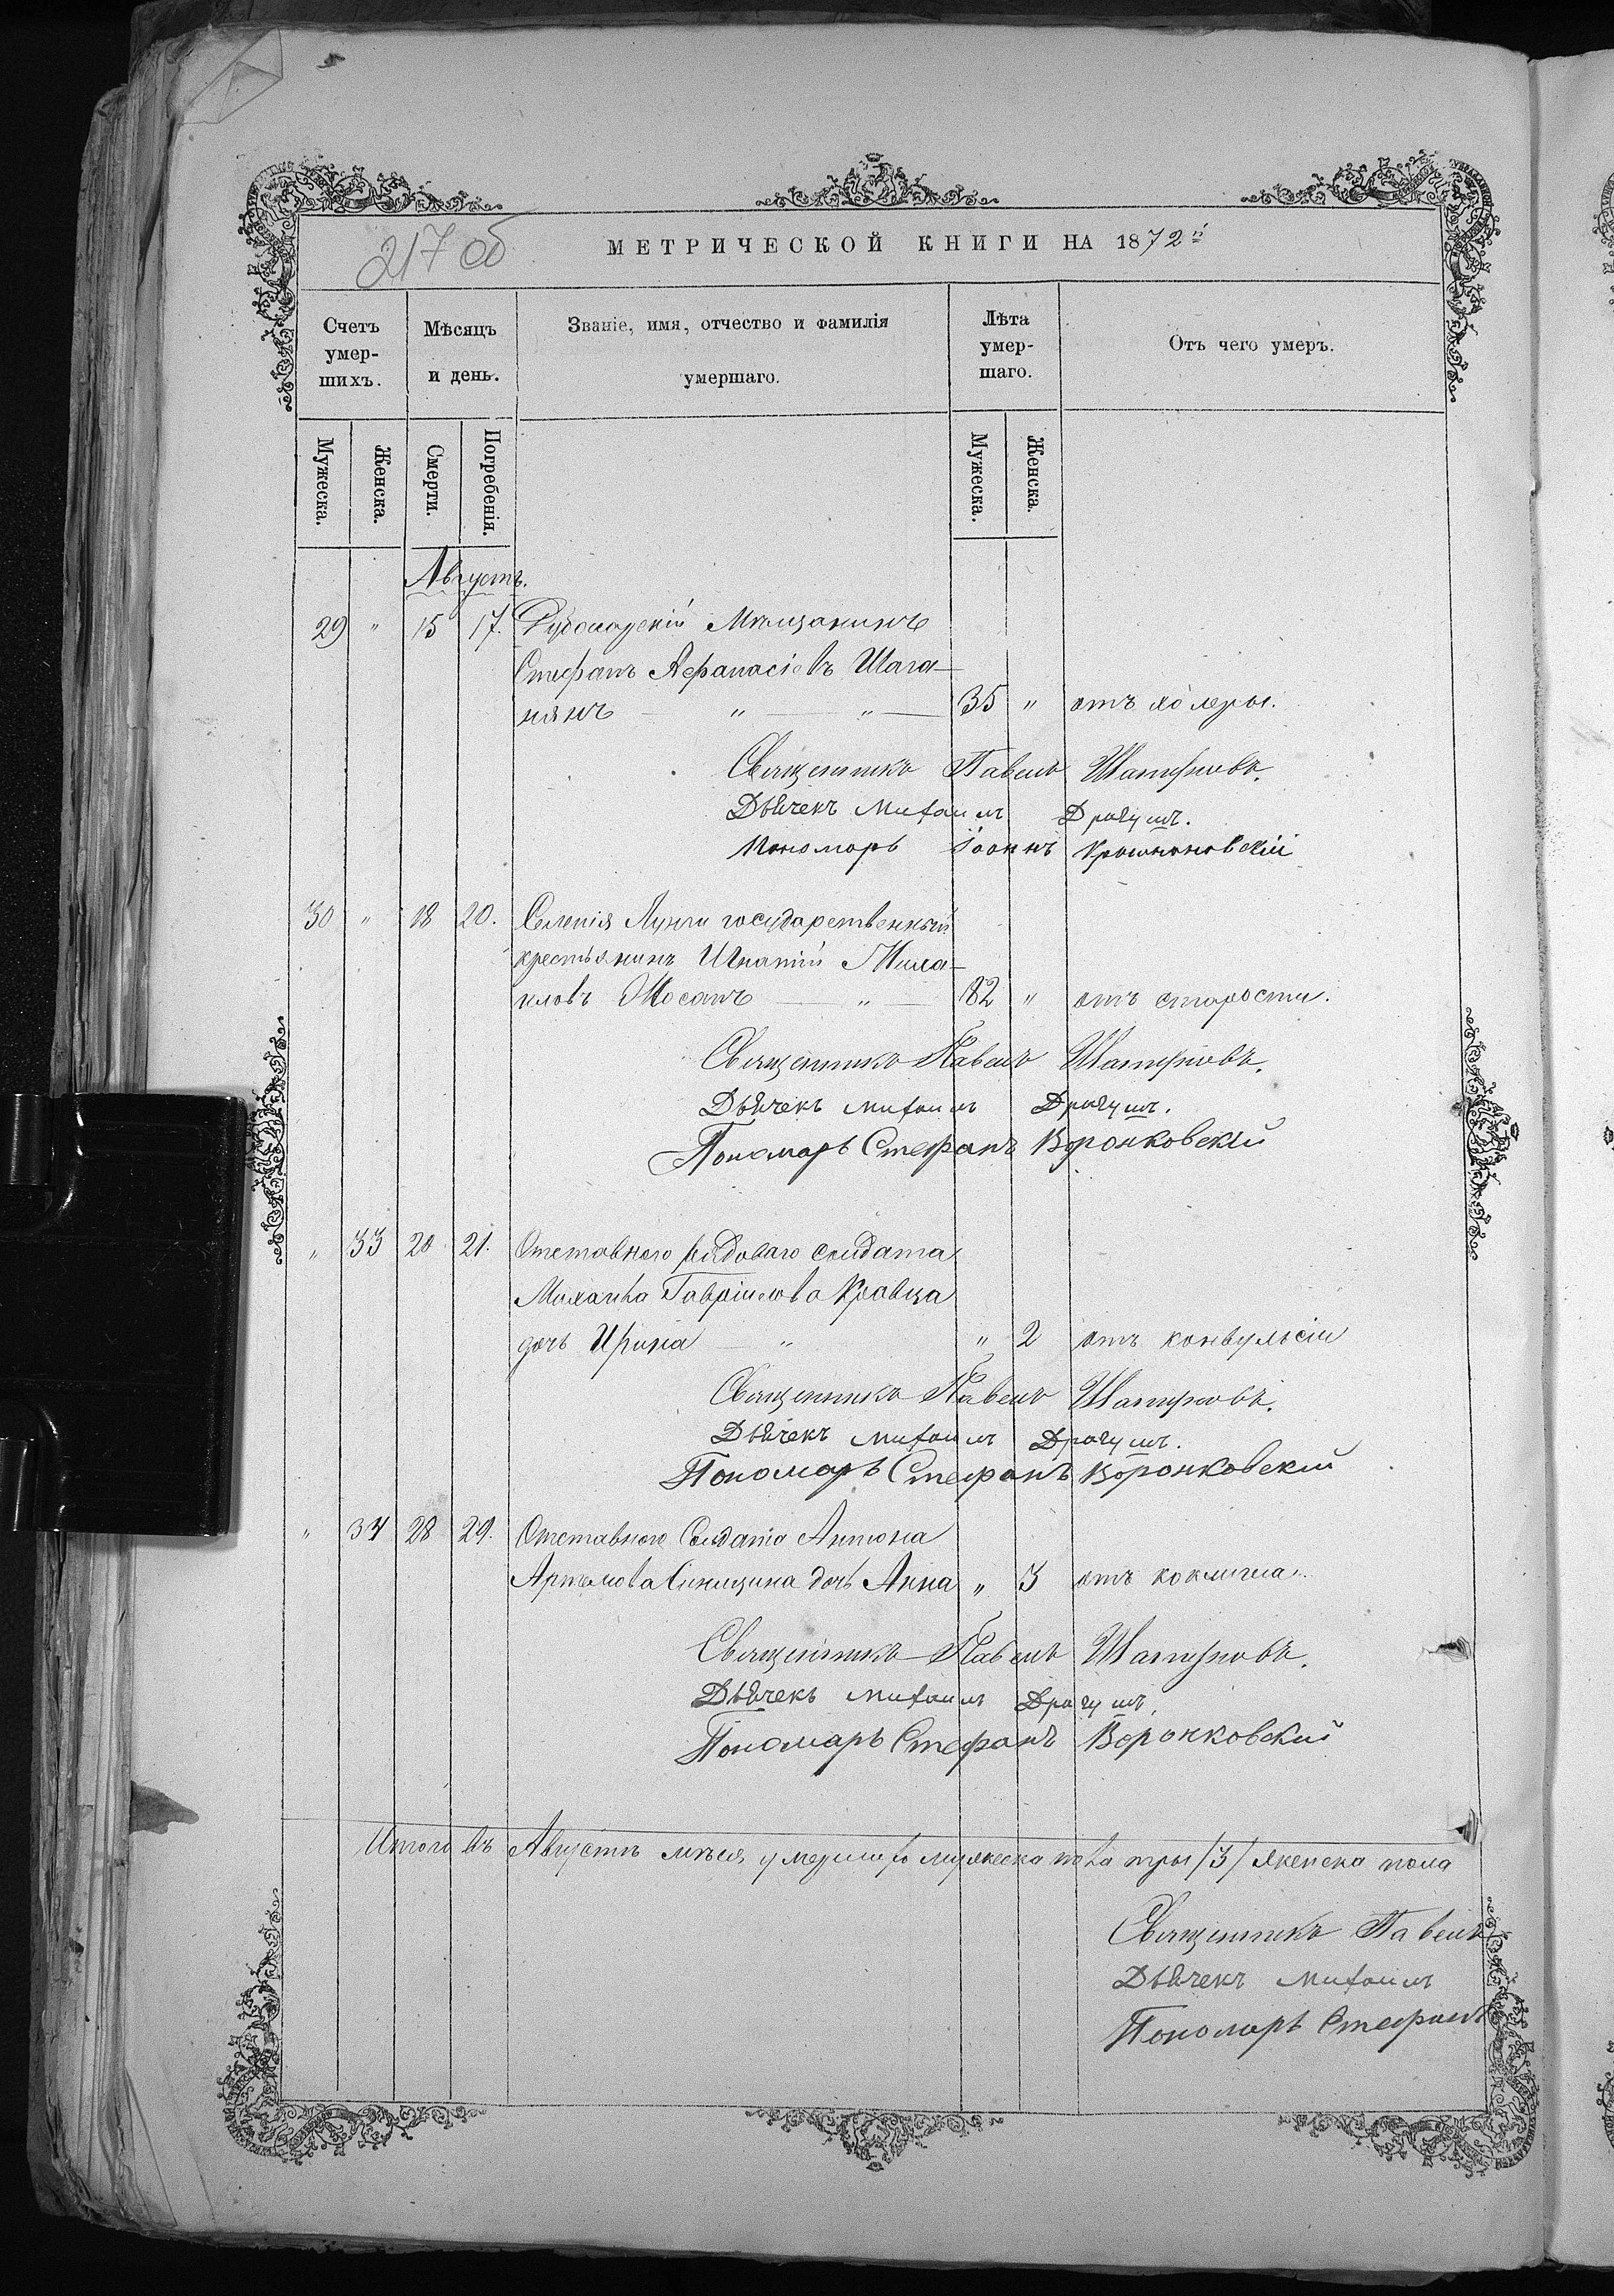 217 об
МЕТРИЧЕСКОЙ КНИГИ НА 1872й
Счетъ умер-шихъ. Мѣсяцъ и день. Званіе, имя, отчество и фамилія умершаго. Лѣта умер-шаго. Отъ чего умеръ.
Мужеска. Женска. Смерти. Погребенія. Мужеска. Женска.
Августъ.
29 " 15 17. Мѣщанинъ
Стефанъ Афанасіевъ Шага-
нянъ " " 35 " отъ холеры.
Священникъ Павелъ
Дьячекъ Михаилъ Драгушъ.
Пономарь Іоаннъ
30 " 18 20. Селенія Лунги государственный
крестьянинъ Игнатій Миха-
иловъ Мосанъ " 82 " отъ старости.
Священникъ Павелъ
Дьячекъ Михаилъ Драгушъ.
Пономарь Стефанъ Воронковскій
" 33 20 21. Отставного рядоваго солдата
Михаила Гавріилова Кравца
дочь Ирина " " 2 отъ конвульсіи
Священникъ Павелъ
Дьячекъ Михаилъ Драгушъ.
Пономарь Стефанъ Воронковскій
" 34 28 29. Отставного Солдата Антона
Артемова Синицина дочь Анна " 3 отъ коклюша.
Священникъ Павелъ
Дьячекъ Михаилъ Драгушъ.
Пономарь Стефанъ Воронковскій
Итого въ Августѣ умершихъ мужеска пола три /3/ женска пола
Священникъ Павелъ
Дьячекъ Михаилъ
Пономарь Стефанъ